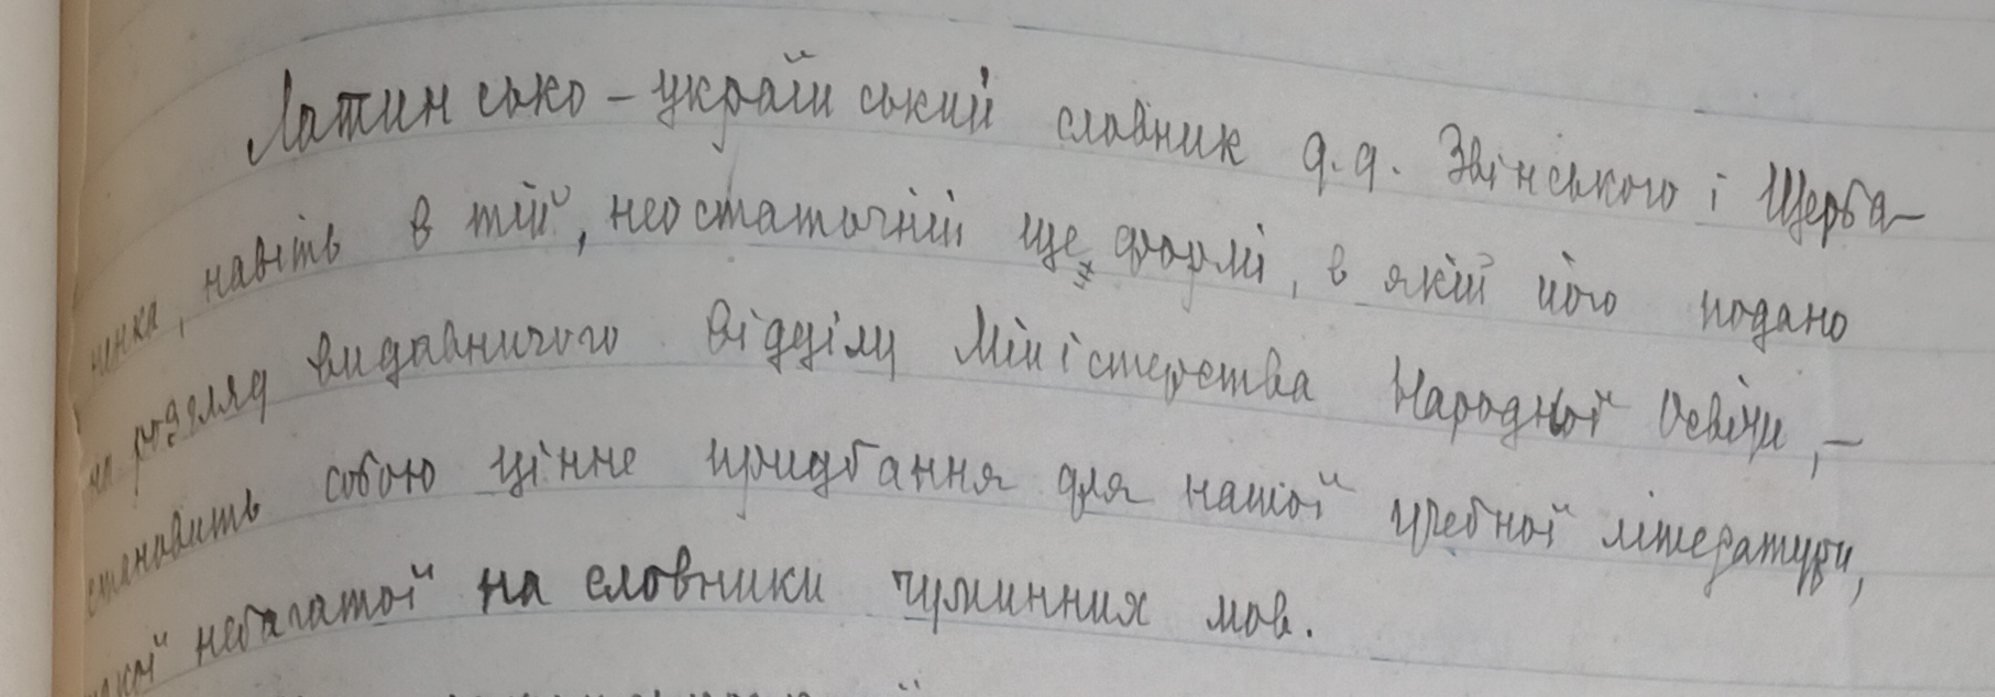 Латинсько-український словник д.д. Звінського і Щерба-
ненка, навіть в тій, неостаточній ще формі, в якій його подано
на розгляд видавничого відділу Міністерства Народньої Освіти, –
становить собою цінне придбання для нашої учебної літератури,
такої небагатої на словники чужинних мов.